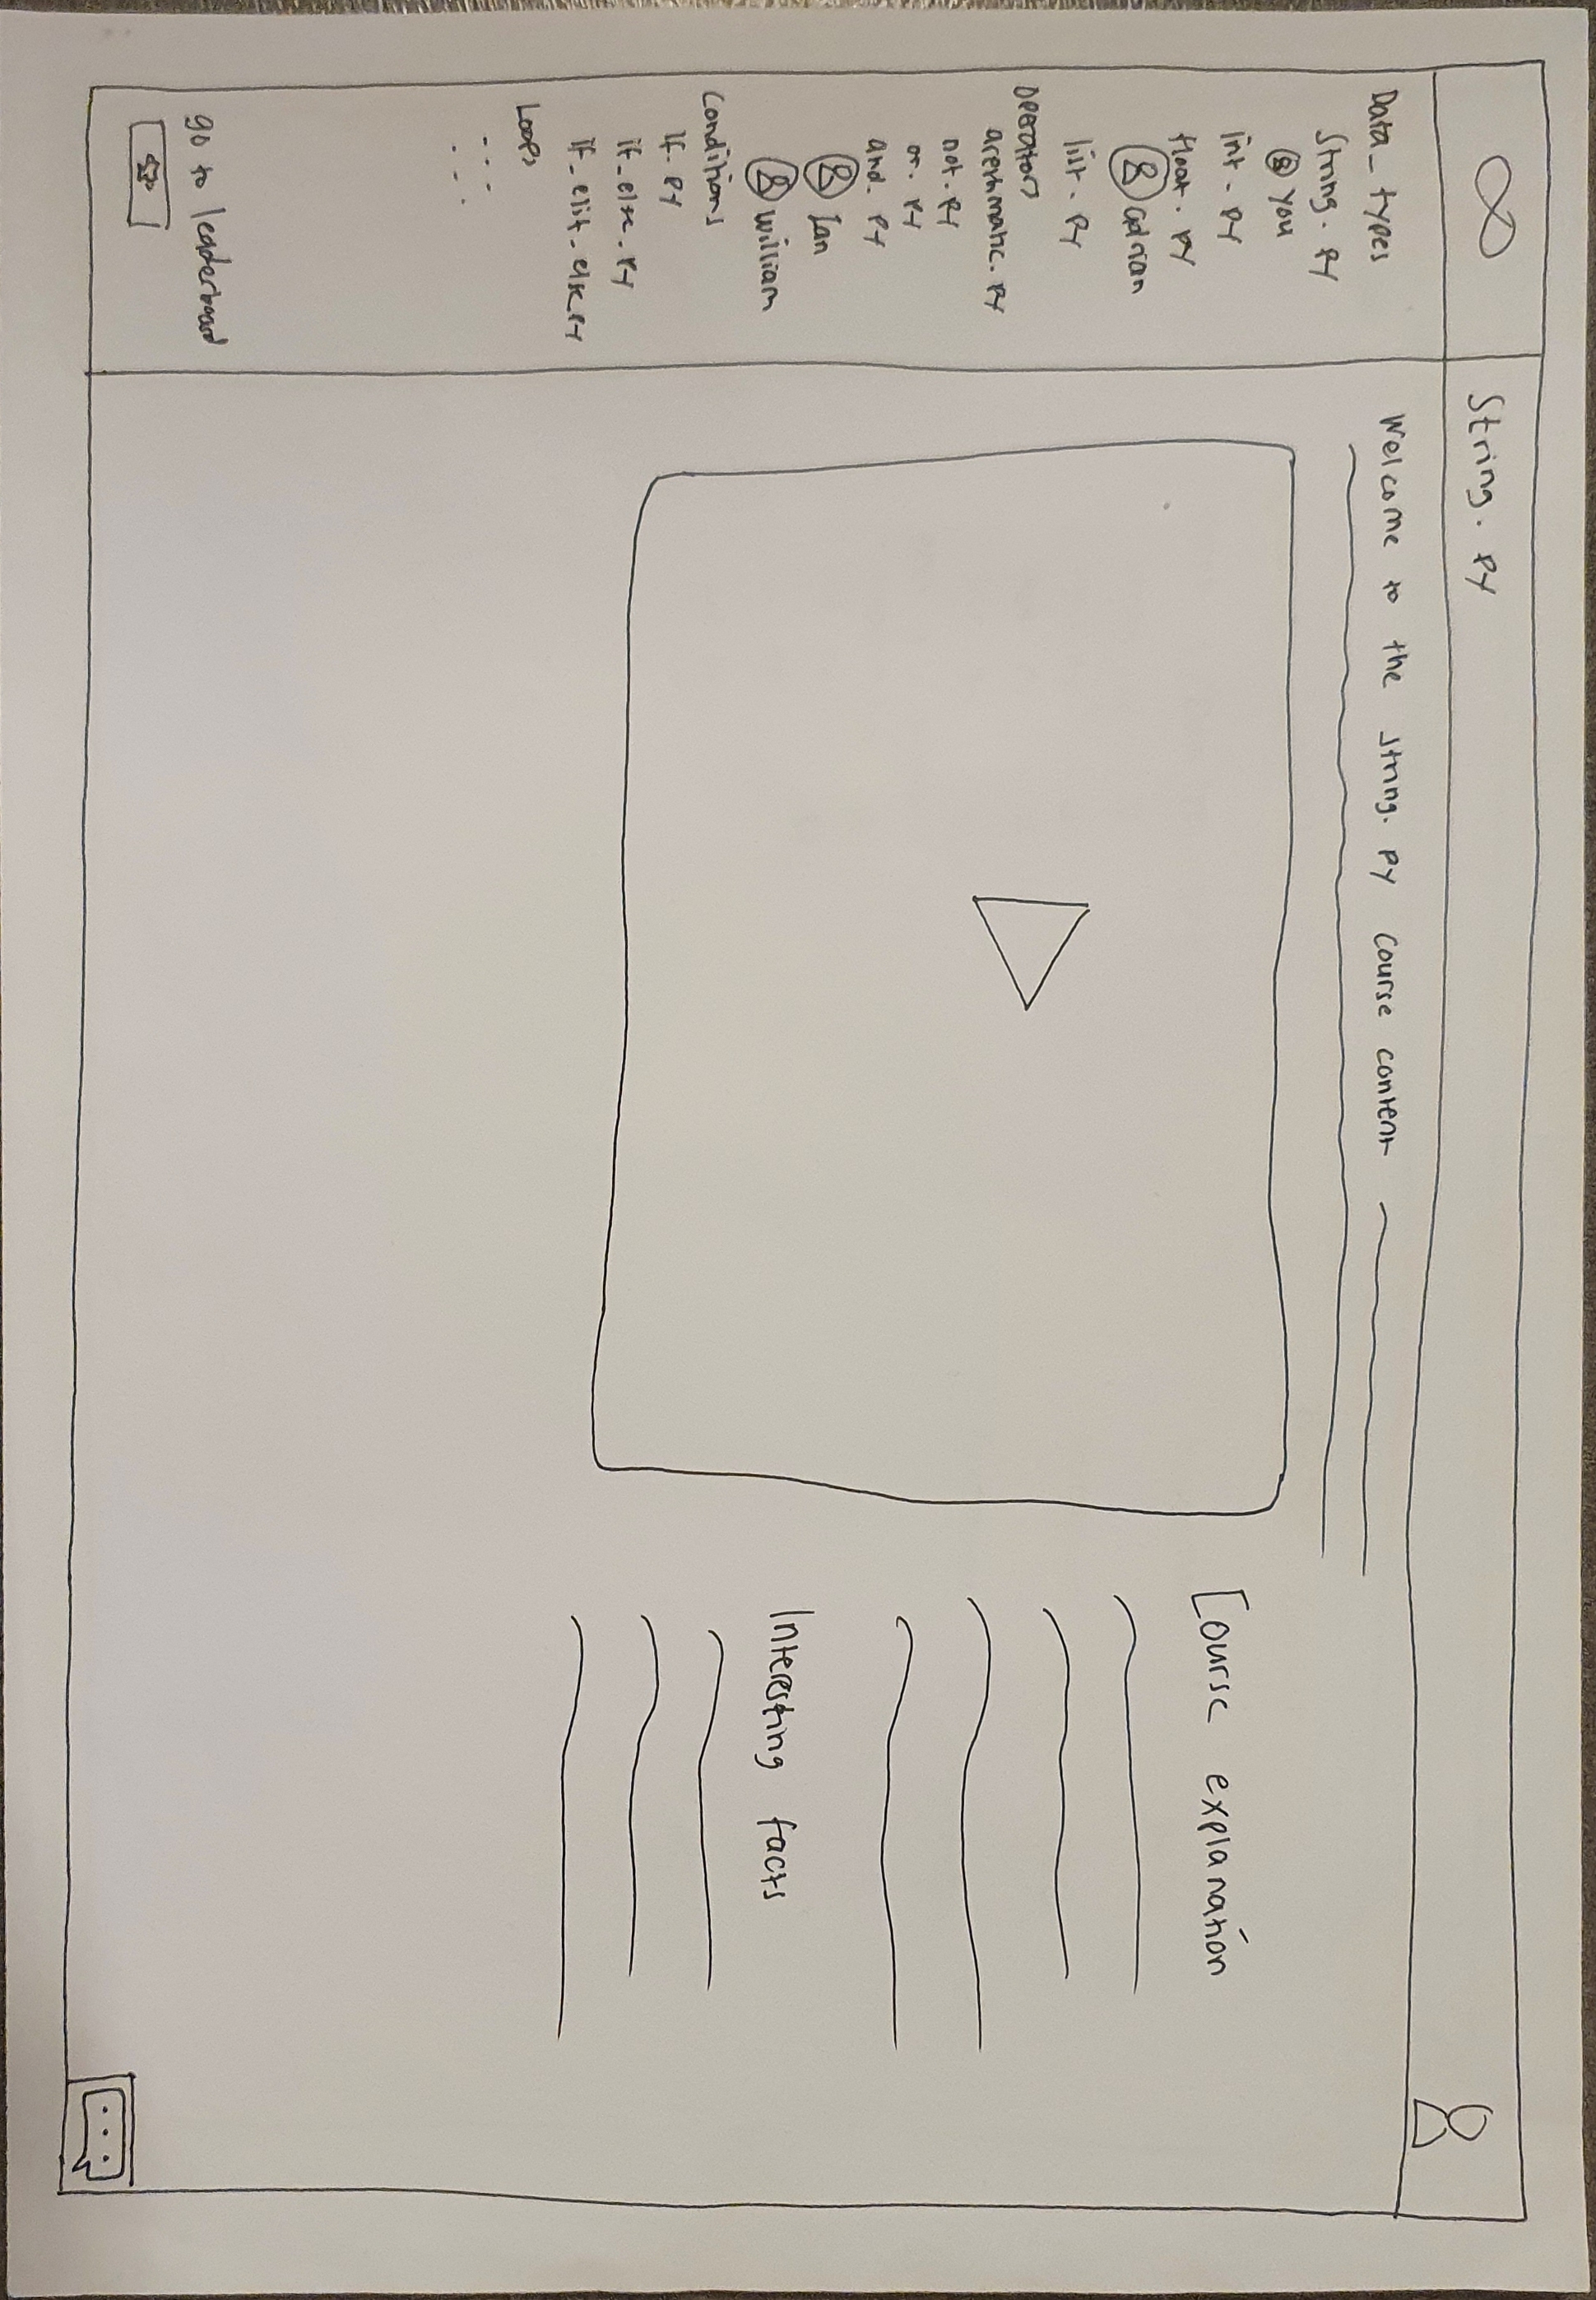 String. PY
Data_types
String. PY
You
int. PY
float. PY
adrian
list. PY
Operators
arethmatic. PY
not. PY
or. PY
and. PY
Ian
William
Conditions
If. PY
if_else. PY
if_elif_else. PY
Loops
go to leaderboard
Welcome to the string. PY course content
Course explanation
Interesting facts